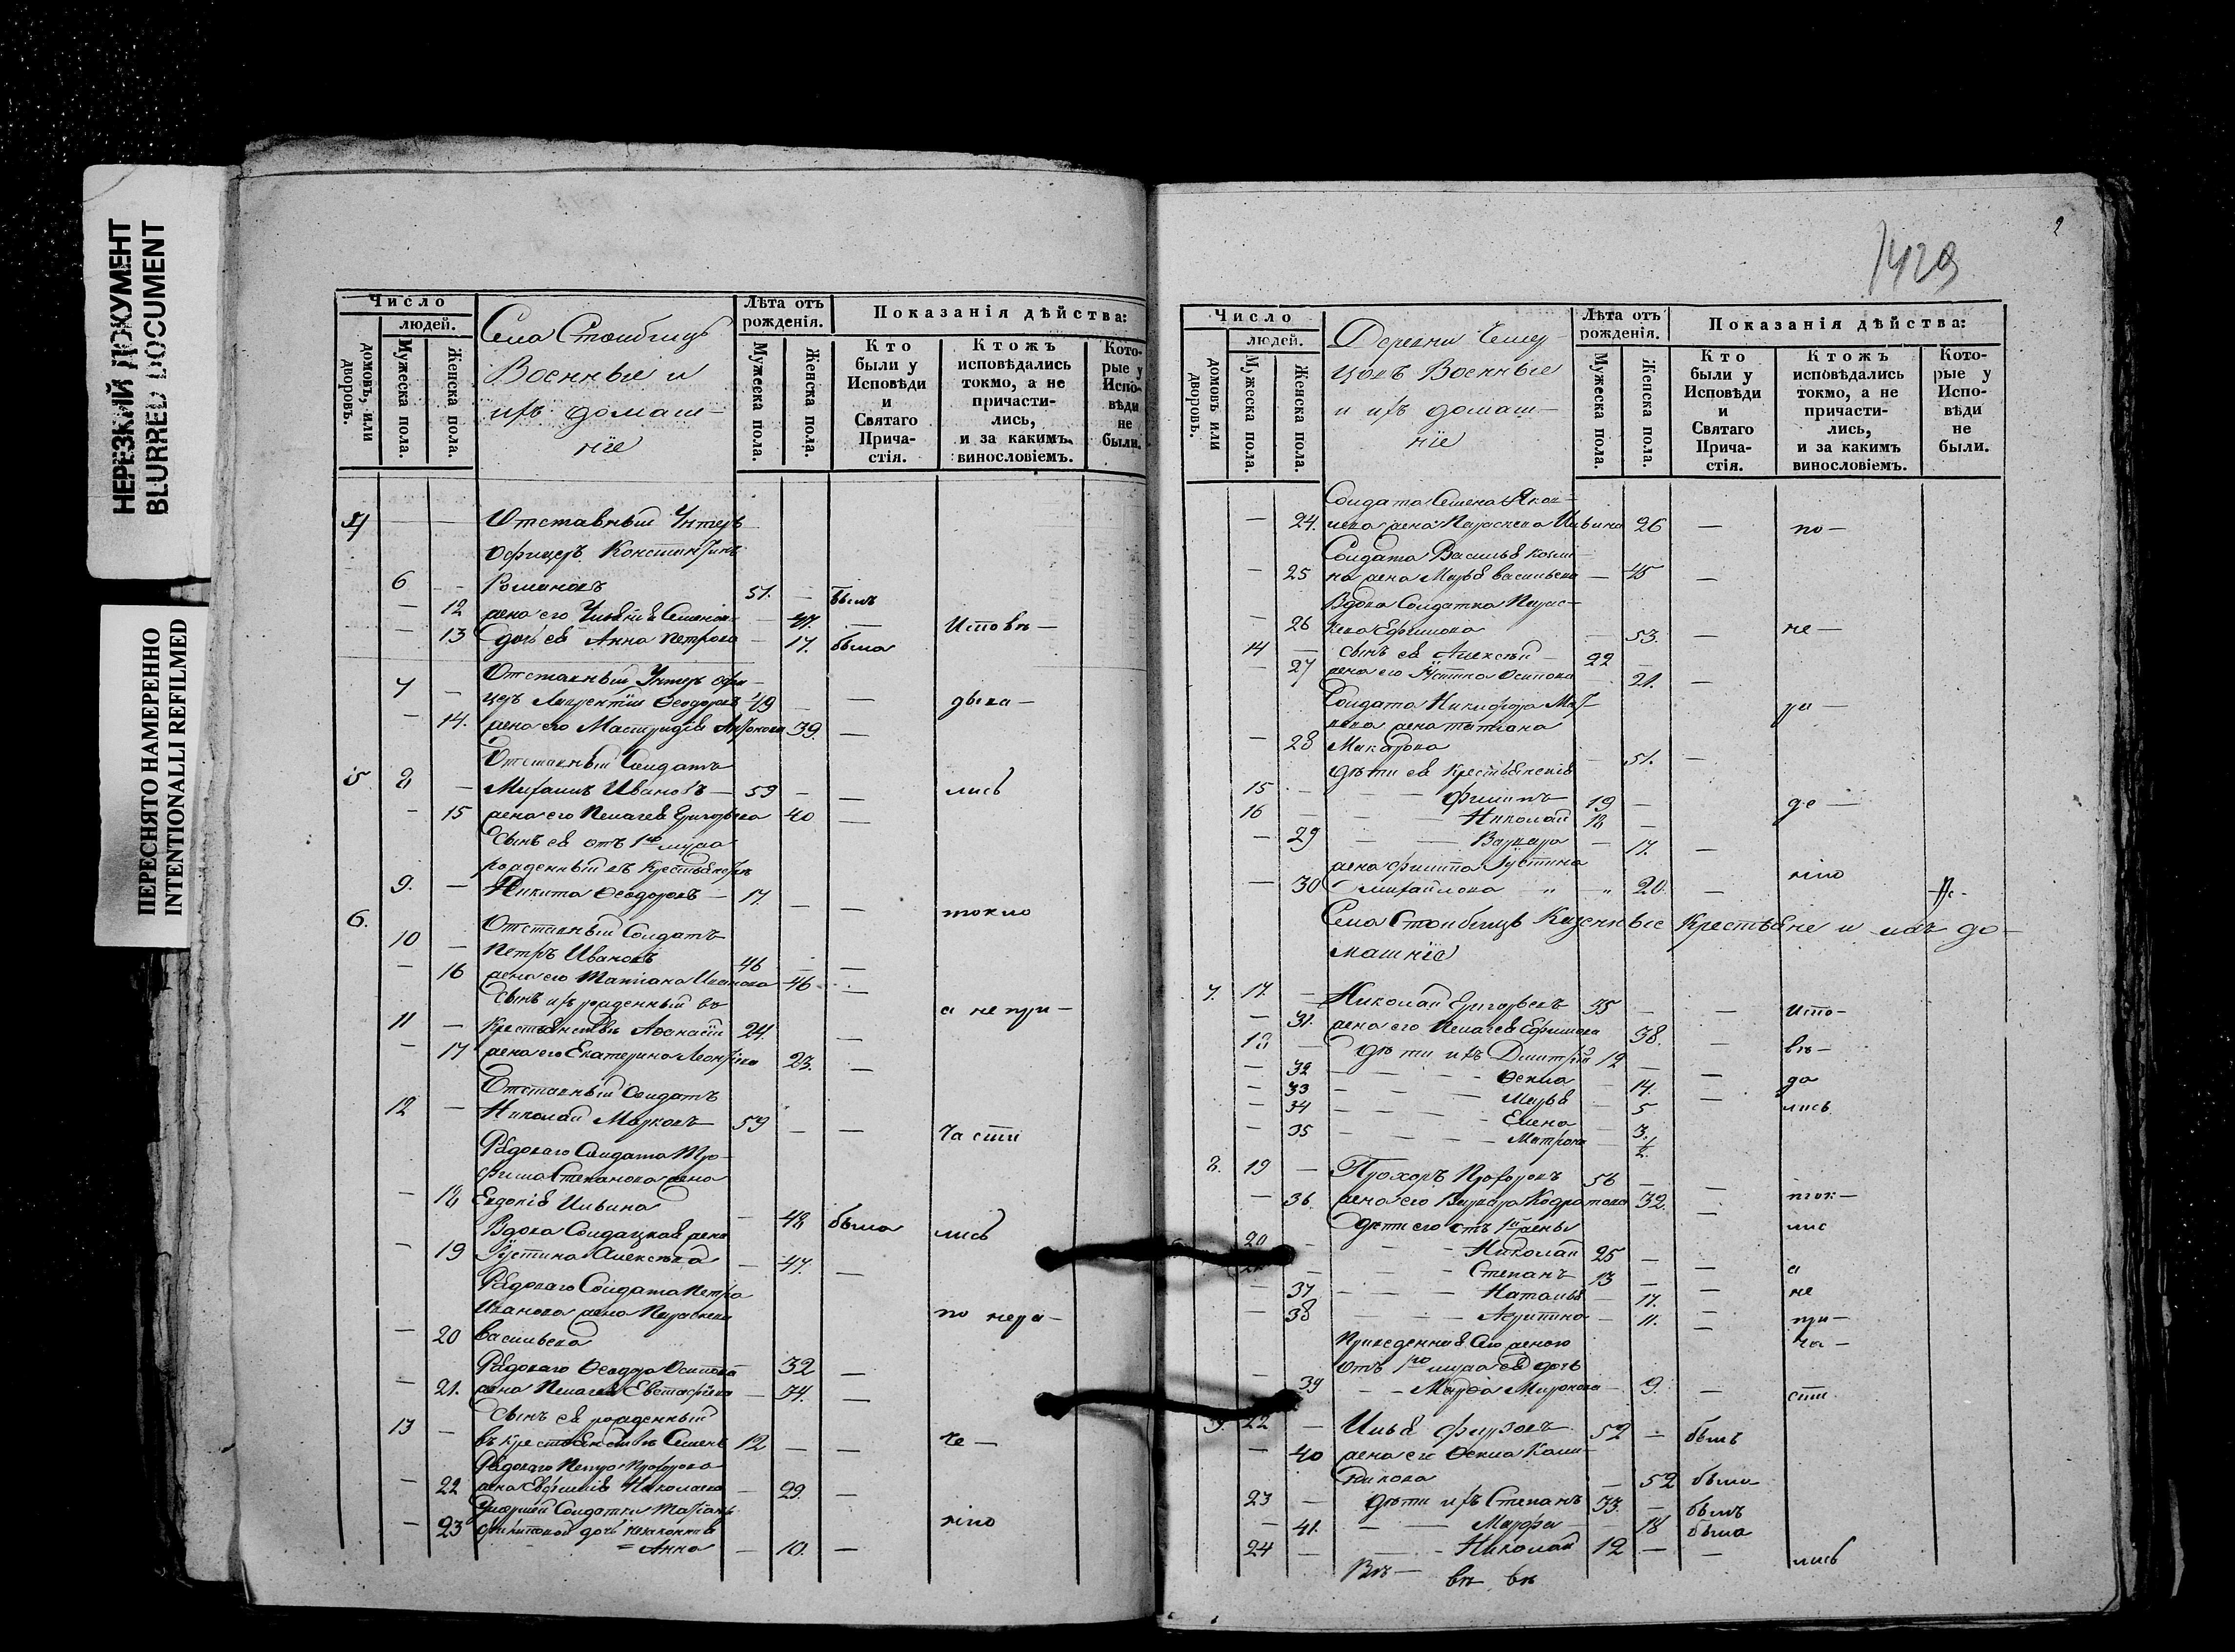 НЕРЕЗКИЙ ДОКУМЕНТ
BLURRED DOCUMENT
ПЕРЕСНЯТО НАМЕРЕННО
INTENTIONALLI REFILMED
Число
людей.
домовъ, или дворовъ.
Мужеска пола.
Женска пола.
Села Столбищъ
Военные и
ихъ домаш-
ніе
Лѣта отъ рожденія.
Мужеска пола.
Женска пола.
Показанія дѣйства:
Кто были у Исповѣди и Святаго Прича-стія.
Ктожъ исповѣдались токмо, а не причасти-лись, и за какимъ винословіемъ.
Кото-рые у Испо-вѣди не были.
4 — — Отставный Унтеръ
офицеръ Константинъ
6 — Романовъ 51. — былъ
— 12 жена его Семенова — 47. — Исповѣ-
— 13 дочь ея Анна Петрова — 17. была
Отставный Унтеръ офи-
7 — церъ Лаврентій Ѳеодоровъ 49 — — дыва-
— 14. жена его 39. —
Отставный Солдатъ
5 8 — Михаилъ Ивановъ — 59 — — лись
— 15 жена его Пелагея Григорьева 40 —
Сынъ ея отъ 1го мужа
рожденный въ крестьянствѣ
9. — Никита Ѳеодоровъ — 17. — — токмо
6. Отставный Солдатъ
10 — Петръ Ивановъ 46 — —
— 16 жена его Татіана Иванова 46 —
Сынъ ихъ рожденный въ а не при-
11 — крестьянствѣ Аѳанасій 24. —
— 17 жена его Екатерина 23. —
Отставный Солдатъ
12 — Николай Марковъ 59 — — части
Рядоваго Солдата Тро-
фима Степанова жена
— 18 Евдокія Ильина — 48 была лись
Вдова Солдатская жена
— 19 Іустина Алексѣева — 47. —
Рядоваго Солдата Петра
Иванова жена Параскева по нера-
— 20 Васильева
Рядоваго Ѳеодора Осипова 32 —
— 21. жена Пелагея Евстафіева — 34. —
Сынъ ея рожденный
13 — въ крестьянствѣ Семенъ 12 — — че-
Рядоваго Петра Прохорова
— 22 жена Евфимія Николаева — 29. —
Умершей Солдатки Татіаны
— 23 Филиповой дочь незаконная нію
= Анна — 10. —
2
1429
Число
людей.
домовъ или дворовъ.
Мужеска пола.
Женска пола.
Деревни
Военные
и ихъ домаш-
ніе
Лѣта отъ рожденія.
Мужеска пола.
Женска пола.
Показанія дѣйства:
Кто были у Исповѣди и Святаго Прича-стія.
Ктожъ исповѣдались токмо, а не причасти-лись, и за какимъ винословіемъ.
Кото-рые у Испо-вѣди не были.
Солдата Семена Яков-
— 24. лева жена Параскева Ильина 26 — по-
Солдата Василья Козми-
— 25 на жена Марья Васильева — 45 —
Вдова Солдатка Парас-
— 26 кева Ефимова — 53. — не-
14 — сынъ ея Алексѣй — 22
— 27 жена его Іустина Осипова 21. —
Солдата Никифора ра-
жена Татіана
— 28 Макарова — 51. —
дѣти ея крестьянскія
15 — — Филиппъ 19 — де-
16 — — Николай 18 —
— 29 — Варвара — 17. —
жена Филиппа Іустина нію
— 30 Михайлова — „ — „ 20. —
Села Столбищъ Казенные Крестьяне и ихъ до-
машніе
7. 17. — Николай Григорьевъ 35 — — Испо-
— 31. жена его Пелагея Ефимова 38. —
18 — дѣти ихъ Димитрій 12 — вѣ-
— 32 — Ѳекла — 14. — да
— 33 — Марья — 5 — лись
— 34 — Елена — 3.
— 35 — Матрона — ½.
8. 19 — Прохоръ Прохоровъ 56 — —
— 36. жена его Варвара Кодратова 32. — ток-
дѣти его отъ 1й жены мо
20 — — Николай 25 — —
— Степанъ 13 — — а
— 37 — Наталья — 17. — не
— 38 — Агрипина — 11. — при-
Приведенная его женою ча-
отъ 1го мужа ея дочь
— 39 — Марѳа Миронова — 9. — сти
9. 22 — Илья Фирсовъ 52 — былъ
— 40 жена его Ѳекла Кали-
никова — 52 была
23 — дѣти ихъ Степанъ 33. — былъ
— 41. — Марфа — 18 была
24 — — Николай 12 — — лись